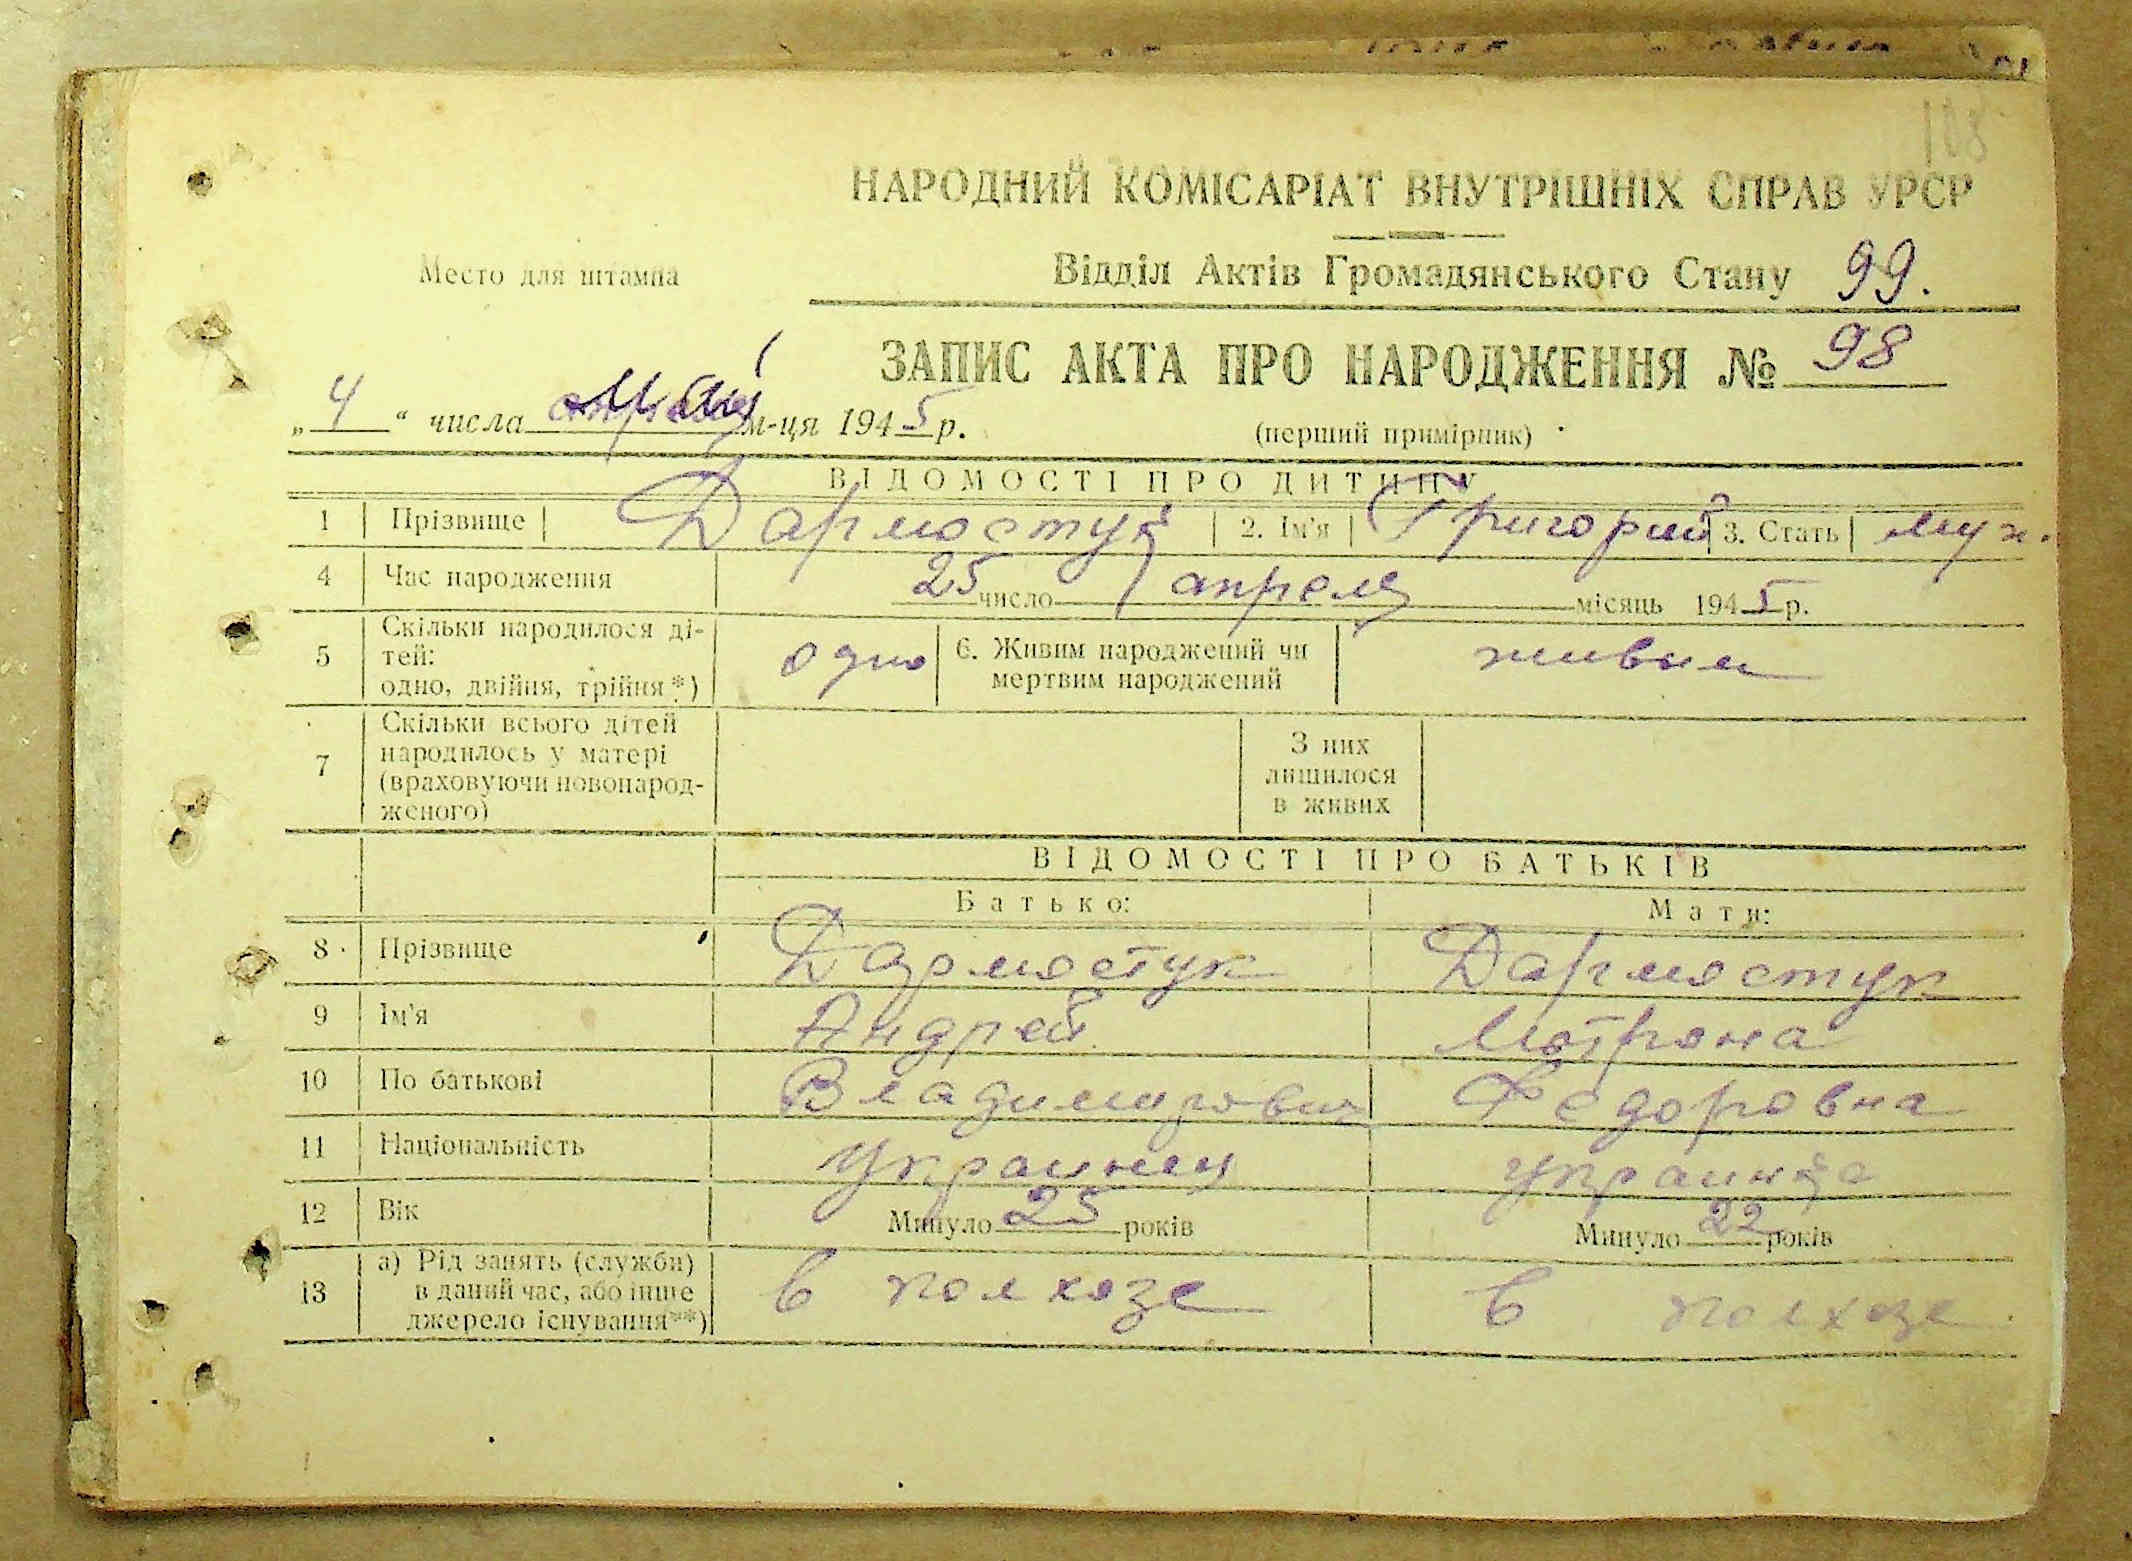 108
НАРОДНИЙ КОМІСАРІАТ ВНУТРІШНІХ СПРАВ УРСР
Место для штампа
Відділ Актів Громадянського Стану 99.
ЗАПИС АКТА ПРО НАРОДЖЕННЯ № 98
„4“ числа мая м-ця 1945 р.
(перший примірник)
ВІДОМОСТІ ПРО ДИТИНУ
1 Прізвище Дармостук 2. Ім'я Григорий 3. Стать муж.
4 Час народження 25 число апреля місяць 1945 р.
5 Скільки народилося ді-
тей:
одно, двійня, трійня*) одно 6. Живим народжений чи
мертвим народжений живым
7 Скільки всього дітей
народилось у матері
(враховуючи новонарод-
женого)
З них
лишилося
в живих
ВІДОМОСТІ ПРО БАТЬКІВ
Батько: Мати:
8 Прізвище Дармостук Дармостук
9 Ім'я Андрей Мотрона
10 По батькові Владимирович Федоровна
11 Національність украинец украинка
12 Вік Минуло 25 років Минуло 22 років
13 а) Рід занять (служби)
в даний час, або інше
джерело існування**) в колхозе в колхозе